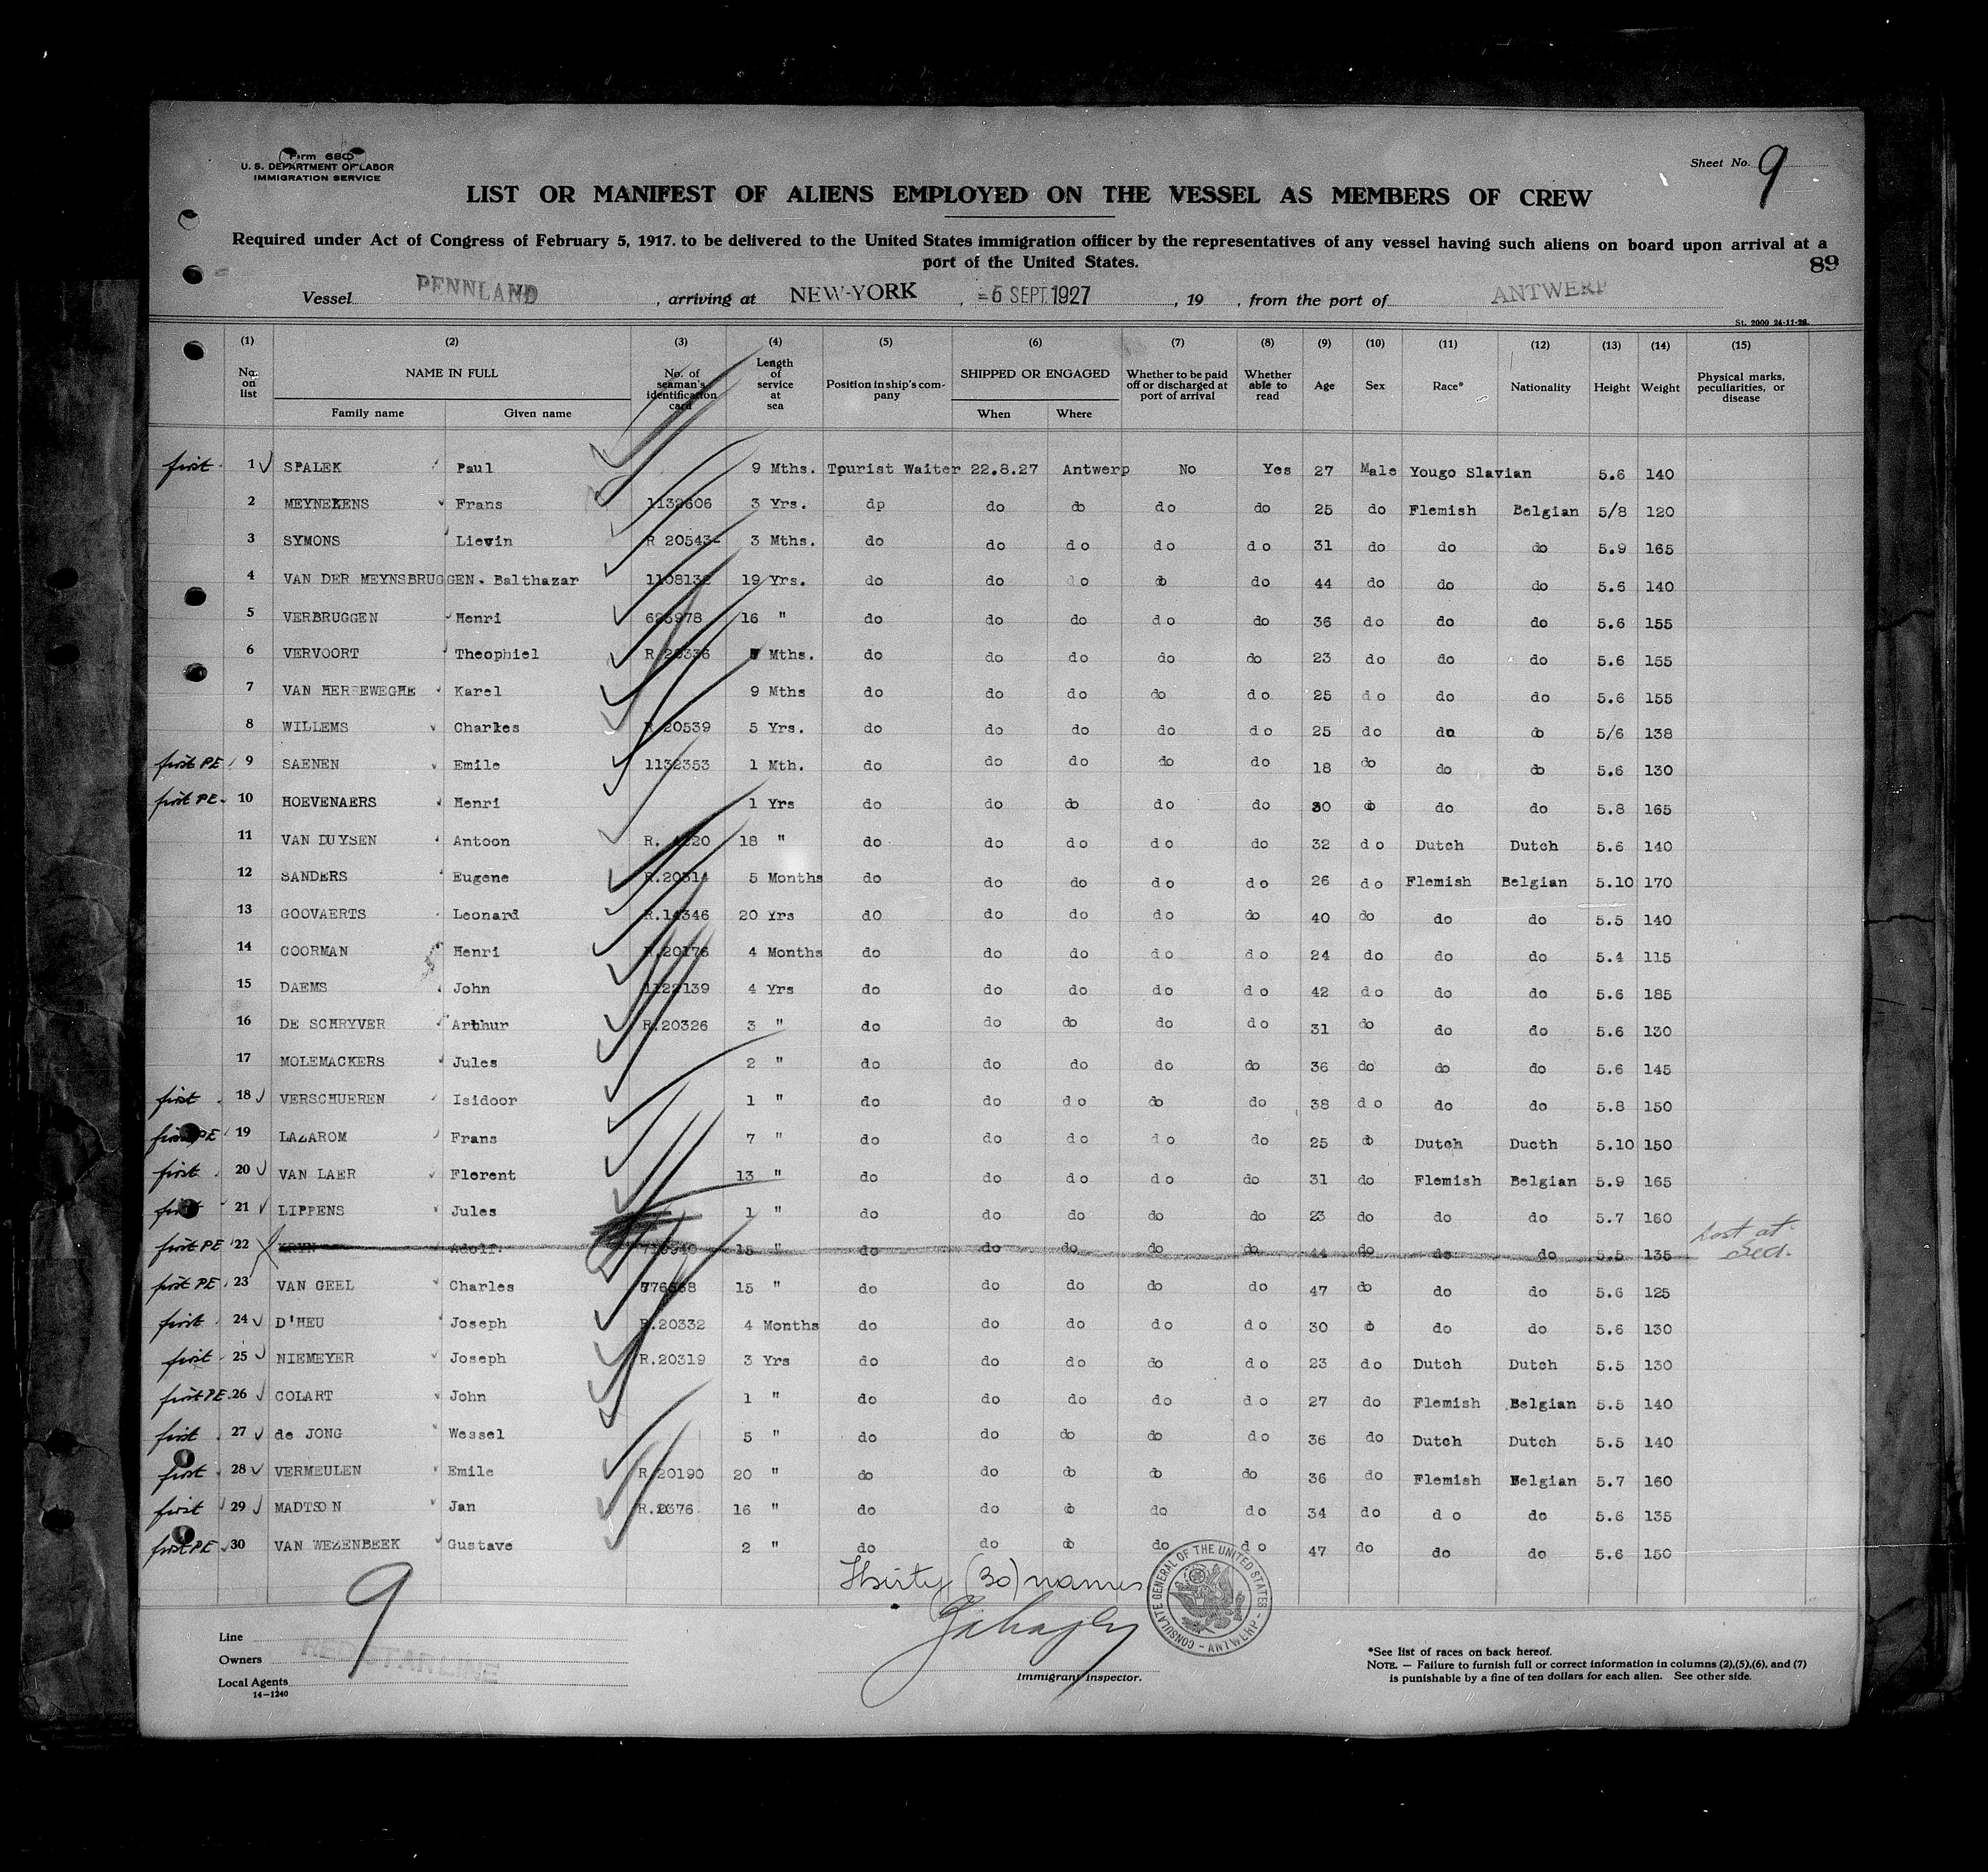 Form 680
U. S. DEPARTMENT OF LABOR
IMMIGRATION SERVICE
Sheet No. 9
LIST OR MANIFEST OF ALIENS EMPLOYED ON THE VESSEL AS MEMBERS OF CREW
Required under Act of Congress of February 5, 1917. to be delivered to the United States immigration officer by the representatives of any vessel having such aliens on board upon arrival at a
port of the United States.
89
Vessel PENNLAND , arriving at NEW-YORK , SEPT. 1927 , 19 , from the port of ANTWERP
St. 2000 24-11-26.
(1) (2) (3) (4) (5) (6) (7) (8) (9) (10) (11) (12) (13) (14) (15)
No. on list NAME IN FULL Family name Given name No. of seaman's identification card Length of service at sea Position in ship's company SHIPPED OR ENGAGED When Where Whether to be paid off or discharged at port of arrival Whether able to read Age Sex Race* Nationality Height Weight Physical marks, peculiarities, or disease
first 1 SPALEK Paul 9 Mths. Tourist Waiter 22.8.27 Antwerp No Yes 27 Male Yougo Slavian 5.6 140
2 MEYNEKENS Frans 1139606 3 Yrs. dp do do do do 25 do Flemish Belgian 5/8 120
3 SYMONS Lievin R 20543- 3 Mths. do do do do do 31 do do do 5.9 165
4 VAN DER MEYNSBRUGGEN. Balthazar 1108132 19 Yrs. do do do do do 44 do do do 5.6 140
5 VERBRUGGEN Henri 16 " do do do do do 36 do do do 5.6 155
6 VERVOORT Theophiel R.20336 Mths. do do do do do 23 do do do 5.6 155
7 VAN HERREWEGHE Karel 9 Mths do do do do do 25 do do do 5.6 155
8 WILLEMS Charles R.20539 5 Yrs. do do do do do 25 do do do 5/6 138
first PE 9 SAENEN Emile 1132353 1 Mth. do do do do do 18 do do do 5.6 130
first PE 10 HOEVENAERS Henri 1 Yrs do do do do do 30 do do do 5.8 165
11 VAN DUYSEN Antoon R. 18 " do do do do do 32 do Dutch Dutch 5.6 140
12 SANDERS Eugene R.20314 5 Months do do do do do 26 do Flemish Belgian 5.10 170
13 GOOVAERTS Leonard R.14346 20 Yrs do do do do do 40 do do do 5.5 140
14 COORMAN Henri R.20176 4 Months do do do do do 24 do do do 5.4 115
15 DAEMS John 1122139 4 Yrs do do do do do 42 do do do 5.6 185
16 DE SCHRYVER Arthur R.20326 3 " do do do do do 31 do do do 5.6 130
17 MOLEMACKERS Jules 2 " do do do do do 36 do do do 5.6 145
first 18 VERSCHUEREN Isidoor 1 " do do do do do 38 do do do 5.8 150
first PE 19 LAZAROM Frans 7 " do do do do do 25 do Dutch Ducth 5.10 150
first 20 VAN LAER Florent 13 " do do do do do 31 do Flemish Belgian 5.9 165
first 21 LIPPENS Jules 1 " do do do do do 23 do do do 5.7 160
first PE 22 KRYN Adolf. 15 " do do do do do 44 do do do 5.5 135 Lost at Sea.
first PE 23 VAN GEEL Charles 15 " do do do do do 47 do do do 5.6 125
first 24 D'HEU Joseph R.20332 4 Months do do do do do 30 do do do 5.6 130
first 25 NIEMEYER Joseph R.20319 3 Yrs do do do do do 23 do Dutch Dutch 5.5 130
first PE 26 COLART John 1 " do do do do do 27 do Flemish Belgian 5.5 140
first 27 de JONG Wessel 5 " do do do do do 36 do Dutch Dutch 5.5 140
first 28 VERMEULEN Emile R.20190 20 " do do do do do 36 do Flemish Belgian 5.7 160
first 29 MADTSON Jan 16 " do do do do do 34 do do do 5.6 135
first PE 30 VAN WEZENBEEK Gustave 2 " do do do do do 47 do do do 5.6 150
Thirty (30) names
9
CONSULATE GENERAL OF THE UNITED STATES - ANTWERP -
Line
Owners RED STAR LINE
Local Agents
14-1240
Immigrant Inspector.
*See list of races on back hereof.
NOTE. — Failure to furnish full or correct information in columns (2),(5),(6), and (7)
is punishable by a fine of ten dollars for each alien. See other side.